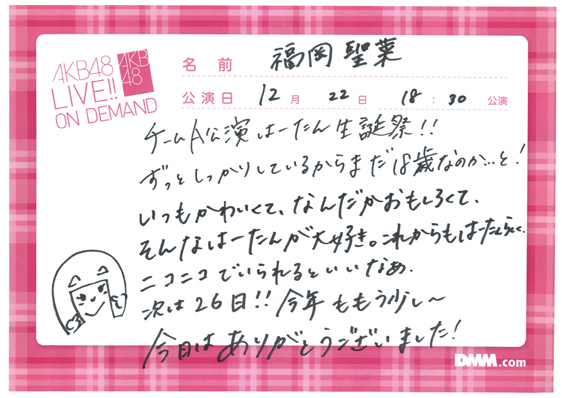 AKB48
LIVE!!
ON DEMAND
AKB
48
名前 福岡聖菜
公演日 12月 22日 18:30 公演
チームA公演はーたん生誕祭!!
ずっとしっかりしているからまだ18歳なのか…と!
いつもかわいくて、なんだかおもしろくて、
そんなはーたんが大好き。これからもはーたんらしく、
ニコニコでいられるといいなぁ。
次は26日!!今年ももう少し〜
今日はありがとうございました!
DMM.com